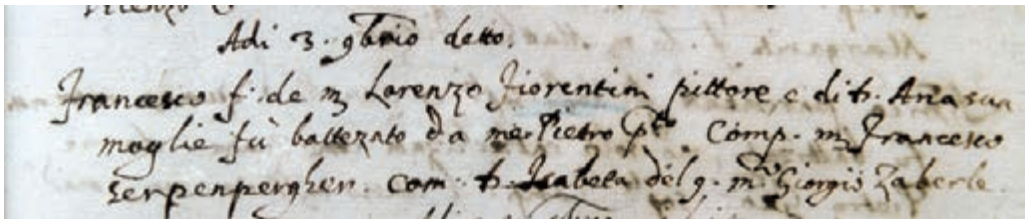 Adi 3. 9brio detto.
Francesco f. de m Lorenzo Fiorentini pittore e di h. Ana sua
moglie fù battezato da me Pietro pto Comp. m Francesco
Serpenpergher. com. h. Isabeta del q. m Giorgio Zaberle